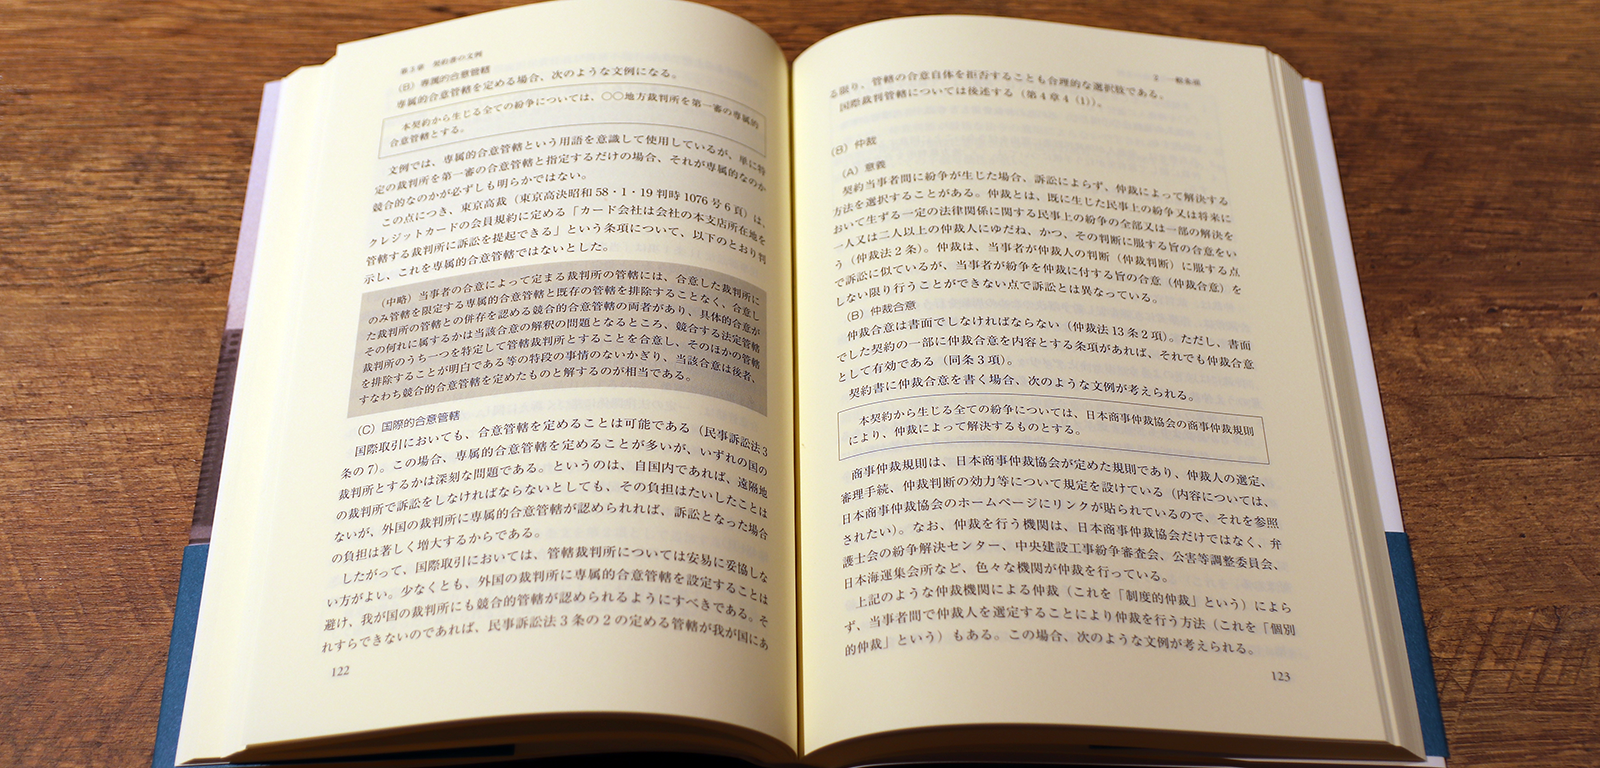 第3章 契約書の文例
(B) 専属的合意管轄
専属的合意管轄を定める場合、次のような文例になる。
本契約から生じる全ての紛争については、○○地方裁判所を第一審の専属的
合意管轄とする。
文例では、専属的合意管轄という用語を意識して使用しているが、単に特
定の裁判所を第一審の合意管轄と指定するだけの場合、それが専属的なのか
競合的なのかが必ずしも明らかではない。
この点につき、東京高裁（東京高決昭和58・1・19判時1076号6頁）は、
クレジットカードの会員規約に定める「カード会社は会社の本支店所在地を
管轄する裁判所に訴訟を提起できる」という条項について、以下のとおり判
示し、これを専属的合意管轄ではないとした。
（中略）当事者の合意によって定まる裁判所の管轄には、合意した裁判所に
のみ管轄を限定する専属的合意管轄と既存の管轄を排除することなく、合意し
た裁判所の管轄との併存を認める競合的合意管轄の両者があり、具体的合意が
その何れに属するかは当該合意の解釈の問題となるところ、競合する法定管轄
裁判所のうち一つを特定して管轄裁判所とすることを合意し、そのほかの管轄
を排除することが明白である等の特段の事情のないかぎり、当該合意は後者、
すなわち競合的合意管轄を定めたものと解するのが相当である。
(C) 国際的合意管轄
国際取引においても、合意管轄を定めることは可能である（民事訴訟法3
条の7）。この場合、専属的合意管轄を定めることが多いが、いずれの国の
裁判所とするかは深刻な問題である。というのは、自国内であれば、遠隔地
の裁判所で訴訟をしなければならないとしても、その負担はたいしたことは
ないが、外国の裁判所に専属的合意管轄が認められれば、訴訟となった場合
の負担は著しく増大するからである。
したがって、国際取引においては、管轄裁判所については安易に妥協しな
い方がよい。少なくとも、外国の裁判所に専属的合意管轄を設定することは
避け、我が国の裁判所にも競合的管轄が認められるようにすべきである。そ
れすらできないのであれば、民事訴訟法3条の2の定める管轄が我が国にあ
122
2 一般条項
る限り、管轄の合意自体を拒否することも合理的な選択肢である。
国際裁判管轄については後述する（第4章4（1））。
(8) 仲裁
(A) 意義
契約当事者間に紛争が生じた場合、訴訟によらず、仲裁によって解決する
方法を選択することがある。仲裁とは、既に生じた民事上の紛争又は将来に
おいて生ずる一定の法律関係に関する民事上の紛争の全部又は一部の解決を
一人又は二人以上の仲裁人にゆだね、かつ、その判断に服する旨の合意をい
う（仲裁法2条）。仲裁は、当事者が仲裁人の判断（仲裁判断）に服する点
で訴訟に似ているが、当事者が紛争を仲裁に付する旨の合意（仲裁合意）を
しない限り行うことができない点で訴訟とは異なっている。
(B) 仲裁合意
仲裁合意は書面でしなければならない（仲裁法13条2項）。ただし、書面
でした契約の一部に仲裁合意を内容とする条項があれば、それでも仲裁合意
として有効である（同条3項）。
契約書に仲裁合意を書く場合、次のような文例が考えられる。
本契約から生じる全ての紛争については、日本商事仲裁協会の商事仲裁規則
により、仲裁によって解決するものとする。
商事仲裁規則は、日本商事仲裁協会が定めた規則であり、仲裁人の選定、
審理手続、仲裁判断の効力等について規定を設けている（内容については、
日本商事仲裁協会のホームページにリンクが貼られているので、それを参照
されたい）。なお、仲裁を行う機関は、日本商事仲裁協会だけではなく、弁
護士会の紛争解決センター、中央建設工事紛争審査会、公害等調整委員会、
日本海運集会所など、色々な機関が仲裁を行っている。
上記のような仲裁機関による仲裁（これを「制度的仲裁」という）によら
ず、当事者間で仲裁人を選定することにより仲裁を行う方法（これを「個別
的仲裁」という）もある。この場合、次のような文例が考えられる。
123